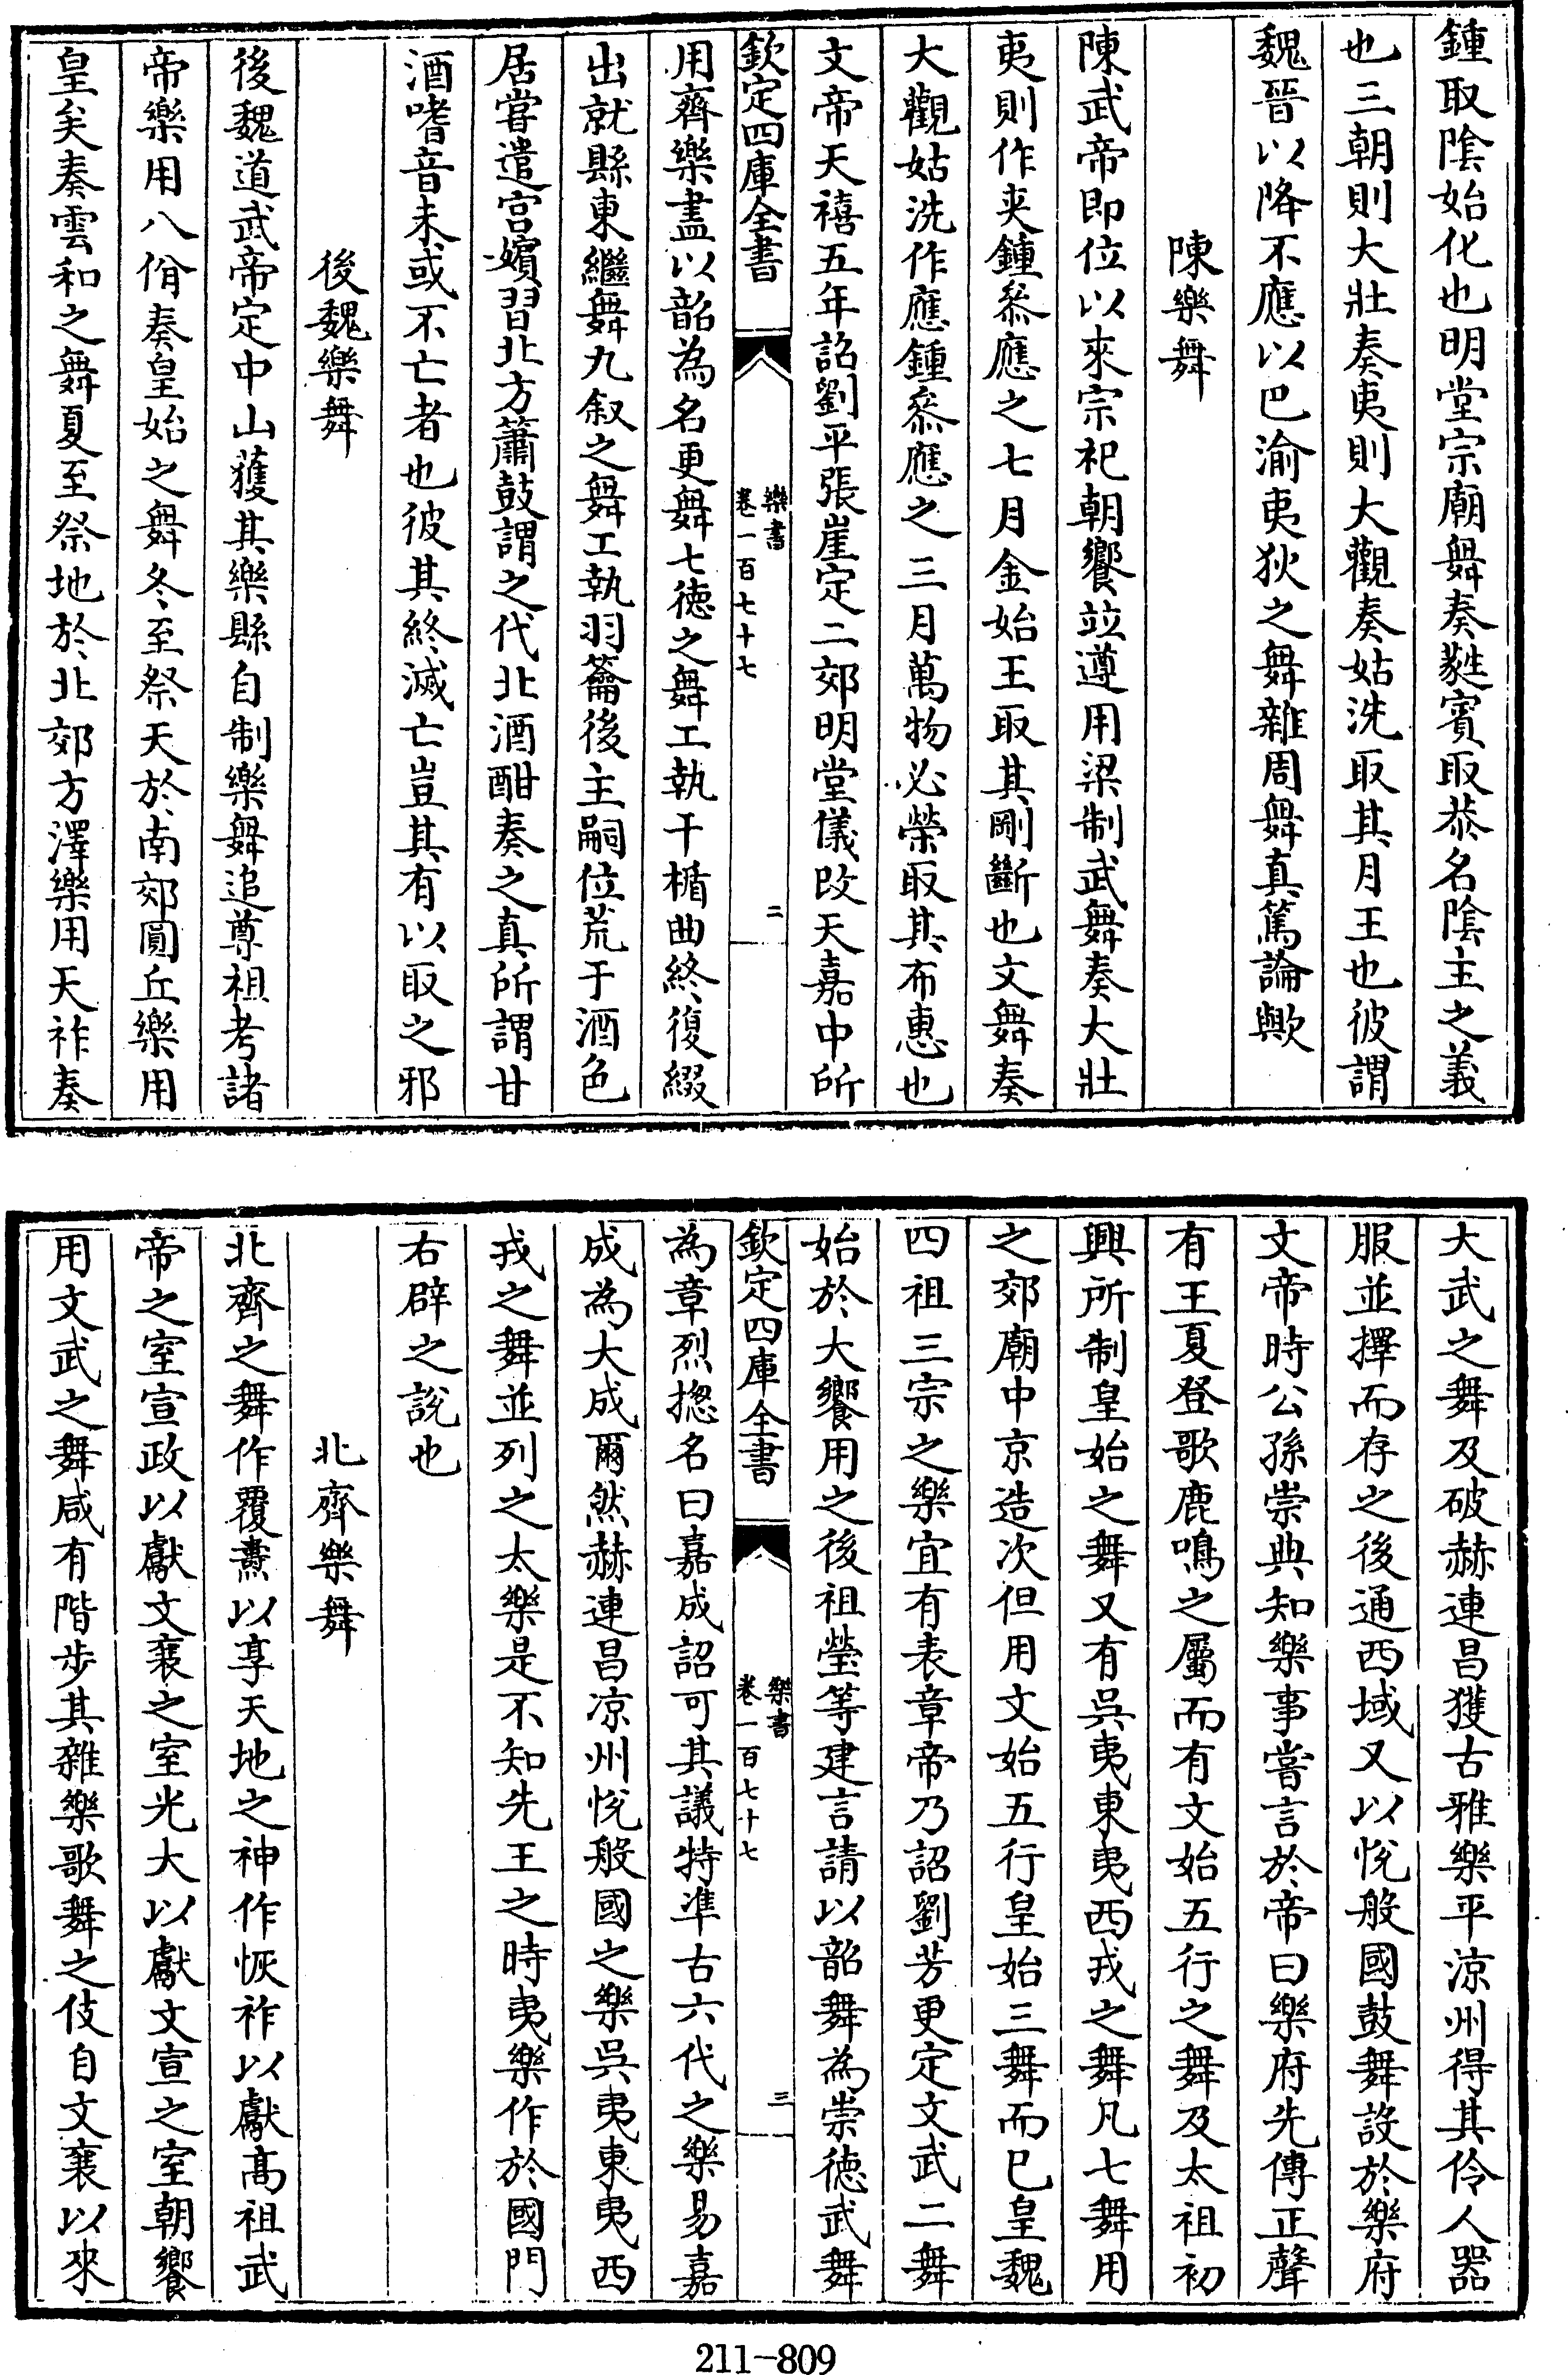 鍾取陰始化也明堂宗廟舞奏蕤賓取恭名陰主之義
也三朝則大壯奏夷則大觀奏姑洗取其月王也彼謂
魏晉以降不應以巴渝夷狄之舞雜周舞真篤論歟
陳樂舞
陳武帝即位以來宗祀朝饗竝遵用梁制武舞奏大壯
夷則作夾鍾叅應之七月金始王取其剛斷也文舞奏
大觀姑洗作應鍾叅應之三月萬物必榮取其布惠也
文帝天禧五年詔劉平張崖定二郊明堂儀改天嘉中所
欽定四庫全書
樂書
卷一百七十七
二
用齊樂盡以韶為名更舞七徳之舞工執干楯曲終復綴
出就縣東繼舞九叙之舞工執羽籥後主嗣位荒于酒色
居嘗遣宫嬪習北方簫鼓謂之代北酒酣奏之真所謂甘
酒嗜音未或不亡者也彼其終滅亡豈其有以取之邪
後魏樂舞
後魏道武帝定中山獲其樂縣自制樂舞追尊祖考諸
帝樂用八佾奏皇始之舞冬至祭天於南郊圓丘樂用
皇矣奏雲和之舞夏至祭地於北郊方澤樂用天祚奏
大武之舞及破赫連昌獲古雅樂平涼州得其伶人器
服並擇而存之後通西域又以悅般國鼓舞設於樂府
文帝時公孫崇典知樂事嘗言於帝曰樂府先傳正聲
有王夏登歌鹿鳴之屬而有文始五行之舞及太祖初
興所制皇始之舞又有呉夷東夷西戎之舞凡七舞用
之郊廟中京造次但用文始五行皇始三舞而已皇魏
四祖三宗之樂宜有表章帝乃詔劉芳更定文武二舞
始於大饗用之後祖瑩等建言請以韶舞為崇徳武舞
欽定四庫全書
樂書
卷一百七十七
三
為章烈揔名曰嘉成詔可其議特準古六代之樂易嘉
成為大成爾然赫連昌凉州悅般國之樂呉夷東夷西
戎之舞並列之太樂是不知先王之時夷樂作於國門
右辟之說也
北齊樂舞
北齊之舞作覆燾以享天地之神作恢祚以獻髙祖武
帝之室宣政以獻文襄之室光大以獻文宣之室朝饗
用文武之舞咸有階步其雜樂歌舞之伎自文襄以來
211-809